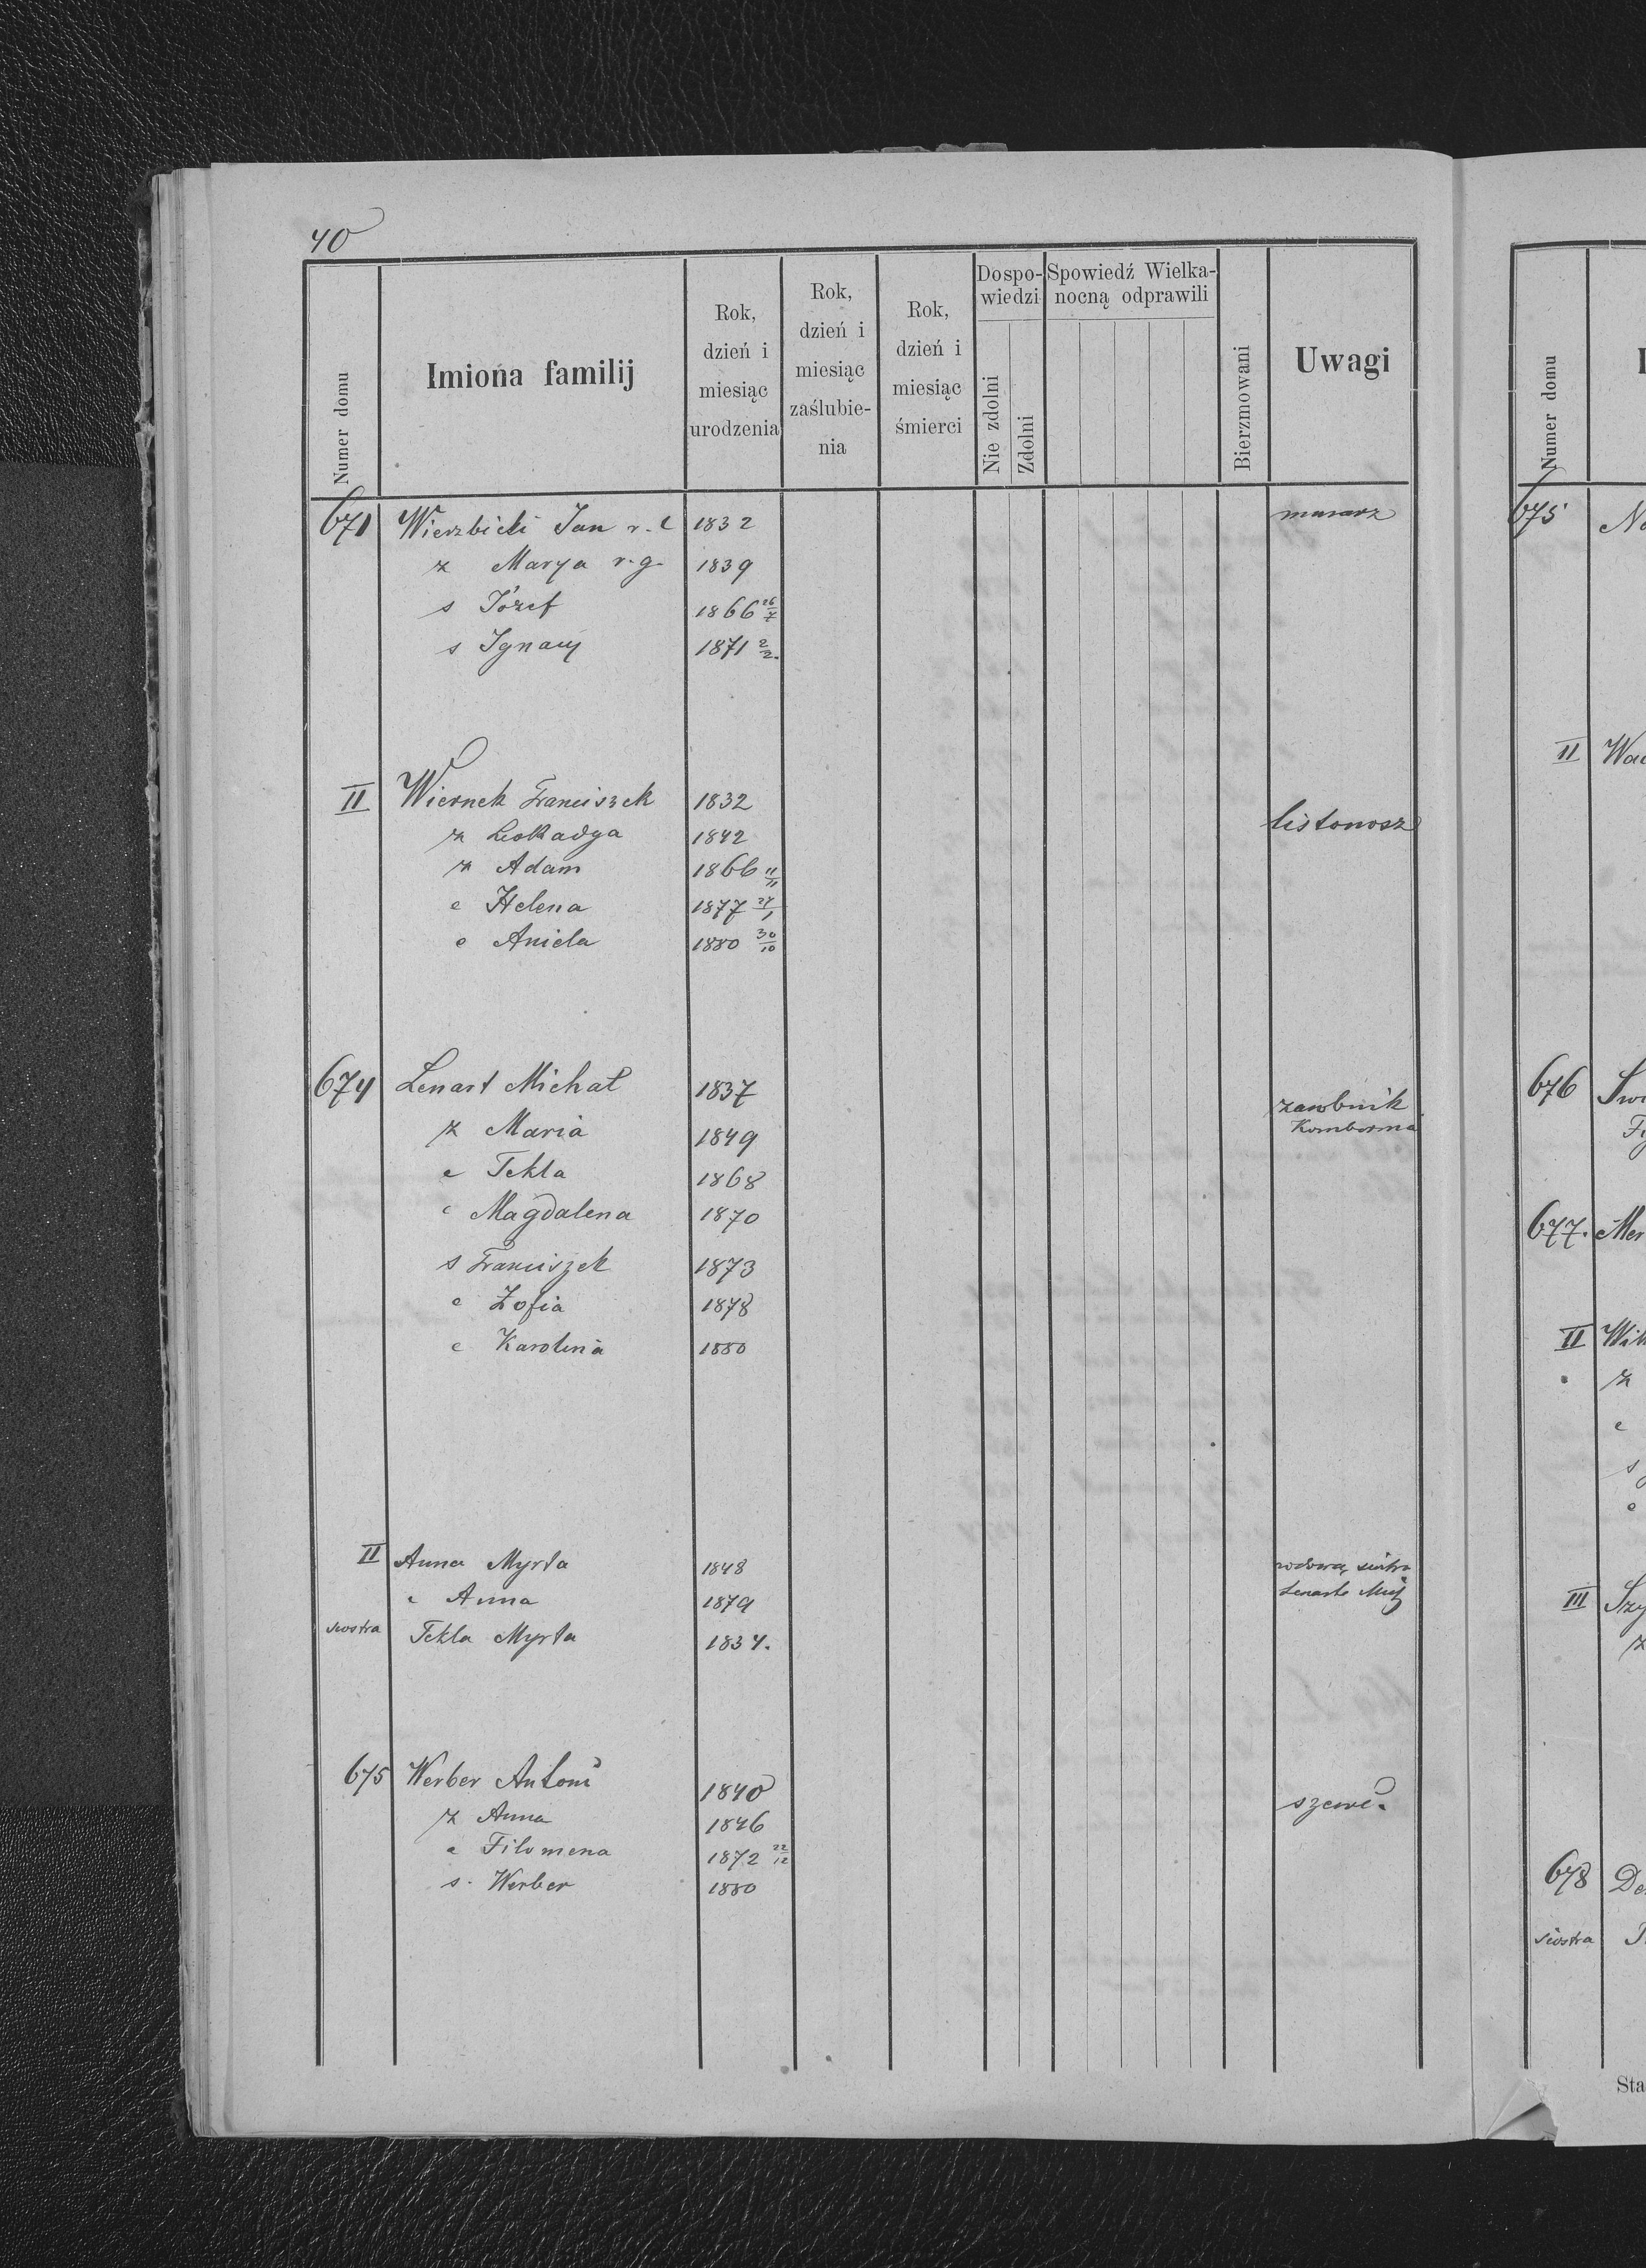 40
Numer domu
Imiona familij
Rok, dzień i miesiąc urodzenia
Rok, dzień i miesiąc zaślubie-nia
Rok, dzień i miesiąc śmierci
Dospo-wiedzi
Nie zdolni
Zdolni
Spowiedź Wielka-nocną odprawili
Bierzmowani
Uwagi
671 Wierzbicki Jan r. l 1832 murarz
ż Marya r. g 1839
s Józef 1866 26/7
s Ignacy 1871 2/2.
II Wiernek Franciszek 1832 listonosz
ż Leokadya 1842
Adam 1866 11/11
c Helena 1877 27/1
c Aniela 1880 30/10
674 Lenart Michał 1837 zarobnik
Kombornia
ż Maria 1849
c Tekla 1868
c Magdalena 1870
s Franciszek 1873
c Zofia 1878
c Karolina 1880
II Anna Myrta 1848
c Anna 1879 Lenarta
siostra Tekla Myrta 1834.
675 Werber Antoni 1840 szewc.
ż Anna 1846
c Filomena 1872 22/12
s. Werber 1880
Numer domu
675
II
676
677.
II
III
678
siostra
Sta